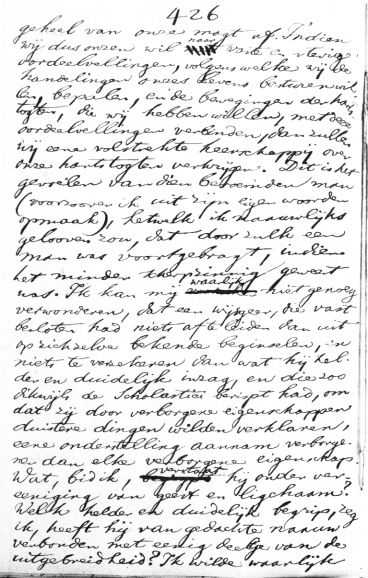 426
geheel van onze magt af. Indien
wij dus onzen wil naar vaste en stevige
oordeelvellingen, volgens welke wij de
handelingen onzes levens besturen wil-
len, bepalen, en de bewegingen der harts-
togten, die wij hebben willen, met deze
oordeelvellingen verbinden, dan zullen
wij eene volstrekte heerschappij over
onze hartstogten verkrijgen. Dit is het
gevoelen van dien beroemden man
(voorzoover ik uit zijn eigen woorden
opmaak), hetwelk ik naauwlijks
gelooven zou, dat door zulk een
man was voortgebragt, indien
het minder scherpzinnig geweest
was. Ik kan mij waarlijk niet genoeg
verwonderen, dat een wijsgeer, die vast
besloten had niets af te leiden dan uit
op zichzelve bekende beginselen, in
niets te verzekeren dan wat hij hel-
der en duidelijk inzag, en die zoo
dikwijls de Scholastici berispt had, om-
dat zij door verborgene eigenschappen
duistere dingen wilden verklaren,
eene onderstelling aannam verborge-
ner dan elke verborgene eigenschap.
Wat, bid ik, verstaat hij onder ver-
eeniging van geest en ligchaam?
Welk helder en duidelijk begrip, zeg
ik, heeft hij van gedachte naauw
verbonden met eenig deeltje van de
uitgebreidheid? Ik wilde waarlijk